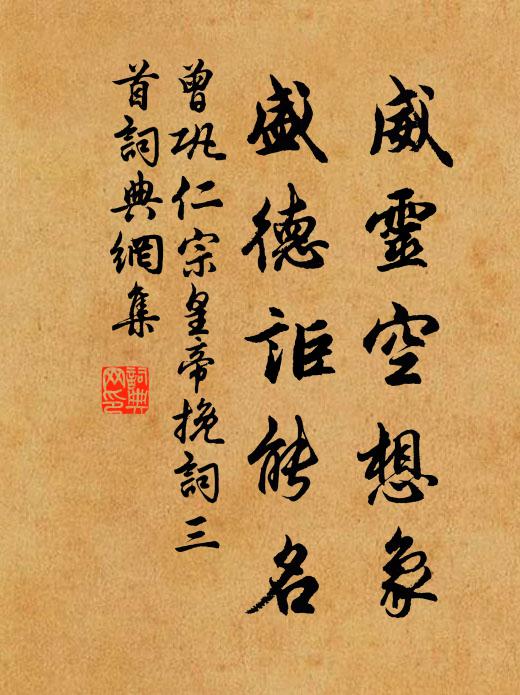 威靈空想象
盛德詎能名
曾巩仁宗皇帝挽詞三
首詞典網集
詞典
网印